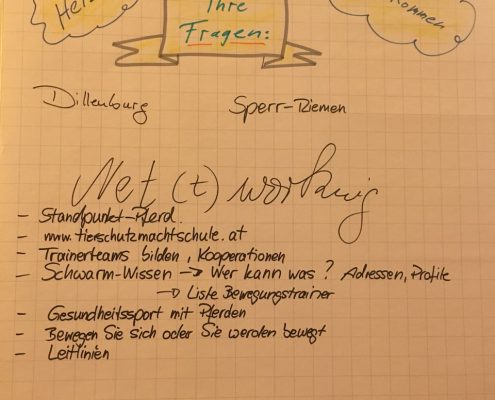 Herz
kommen
Ihre
Fragen:
Dillenburg
Sperr-Riemen
Net(t)working
- Standpunkt-Pferd.
- www.tierschutzmachtschule.at
- Trainerteams bilden, Kooperationen
- Schwarm-Wissen → Wer kann was? Adressen, Profile
→ Liste Bewegungstrainer
- Gesundheitssport mit Pferden
- Bewegen Sie sich oder Sie werden bewegt
- Leitlinien